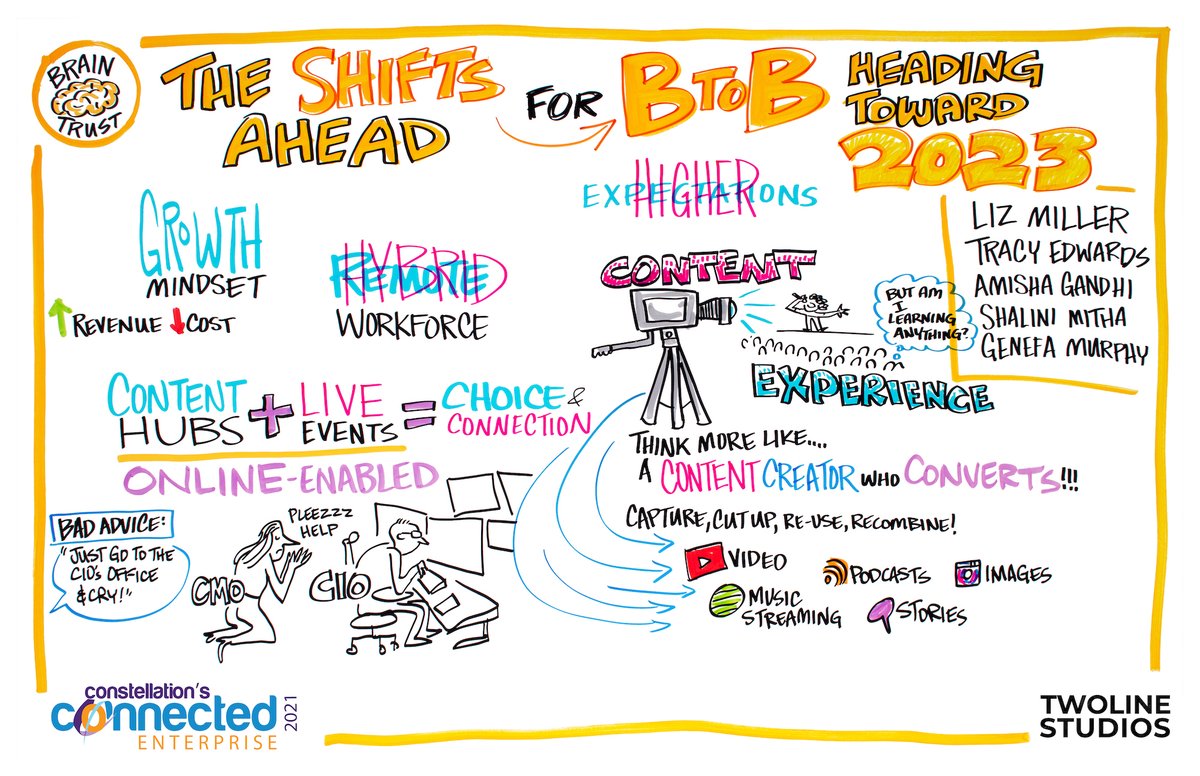 BRAIN
TRUST
THE SHIFTS
AHEAD
FOR
B TO B
HEADING
TOWARD
2023
GROWTH
MINDSET
REVENUE COST
HYBRID
REMOTE
WORKFORCE
HIGHER
EXPECTATIONS
LIZ MILLER
TRACY EDWARDS
AMISHA GANDHI
SHALINI MITHA
GENEFA MURPHY
CONTENT
BUT AM
I
LEARNING
ANYTHING?
EXPERIENCE
CONTENT
HUBS
+
LIVE
EVENTS
=
CHOICE &
CONNECTION
ONLINE-ENABLED
BAD ADVICE:
"JUST GO TO THE
CIO'S OFFICE
& CRY!"
PLEEZZZ
HELP
CMO
CIO
THINK MORE LIKE....
A CONTENT CREATOR WHO CONVERTS!!!
CAPTURE, CUT UP, RE-USE, RECOMBINE!
VIDEO
PODCASTS
IMAGES
MUSIC
STREAMING
STORIES
constellation's
connected
ENTERPRISE
2021
TWOLINE
STUDIOS